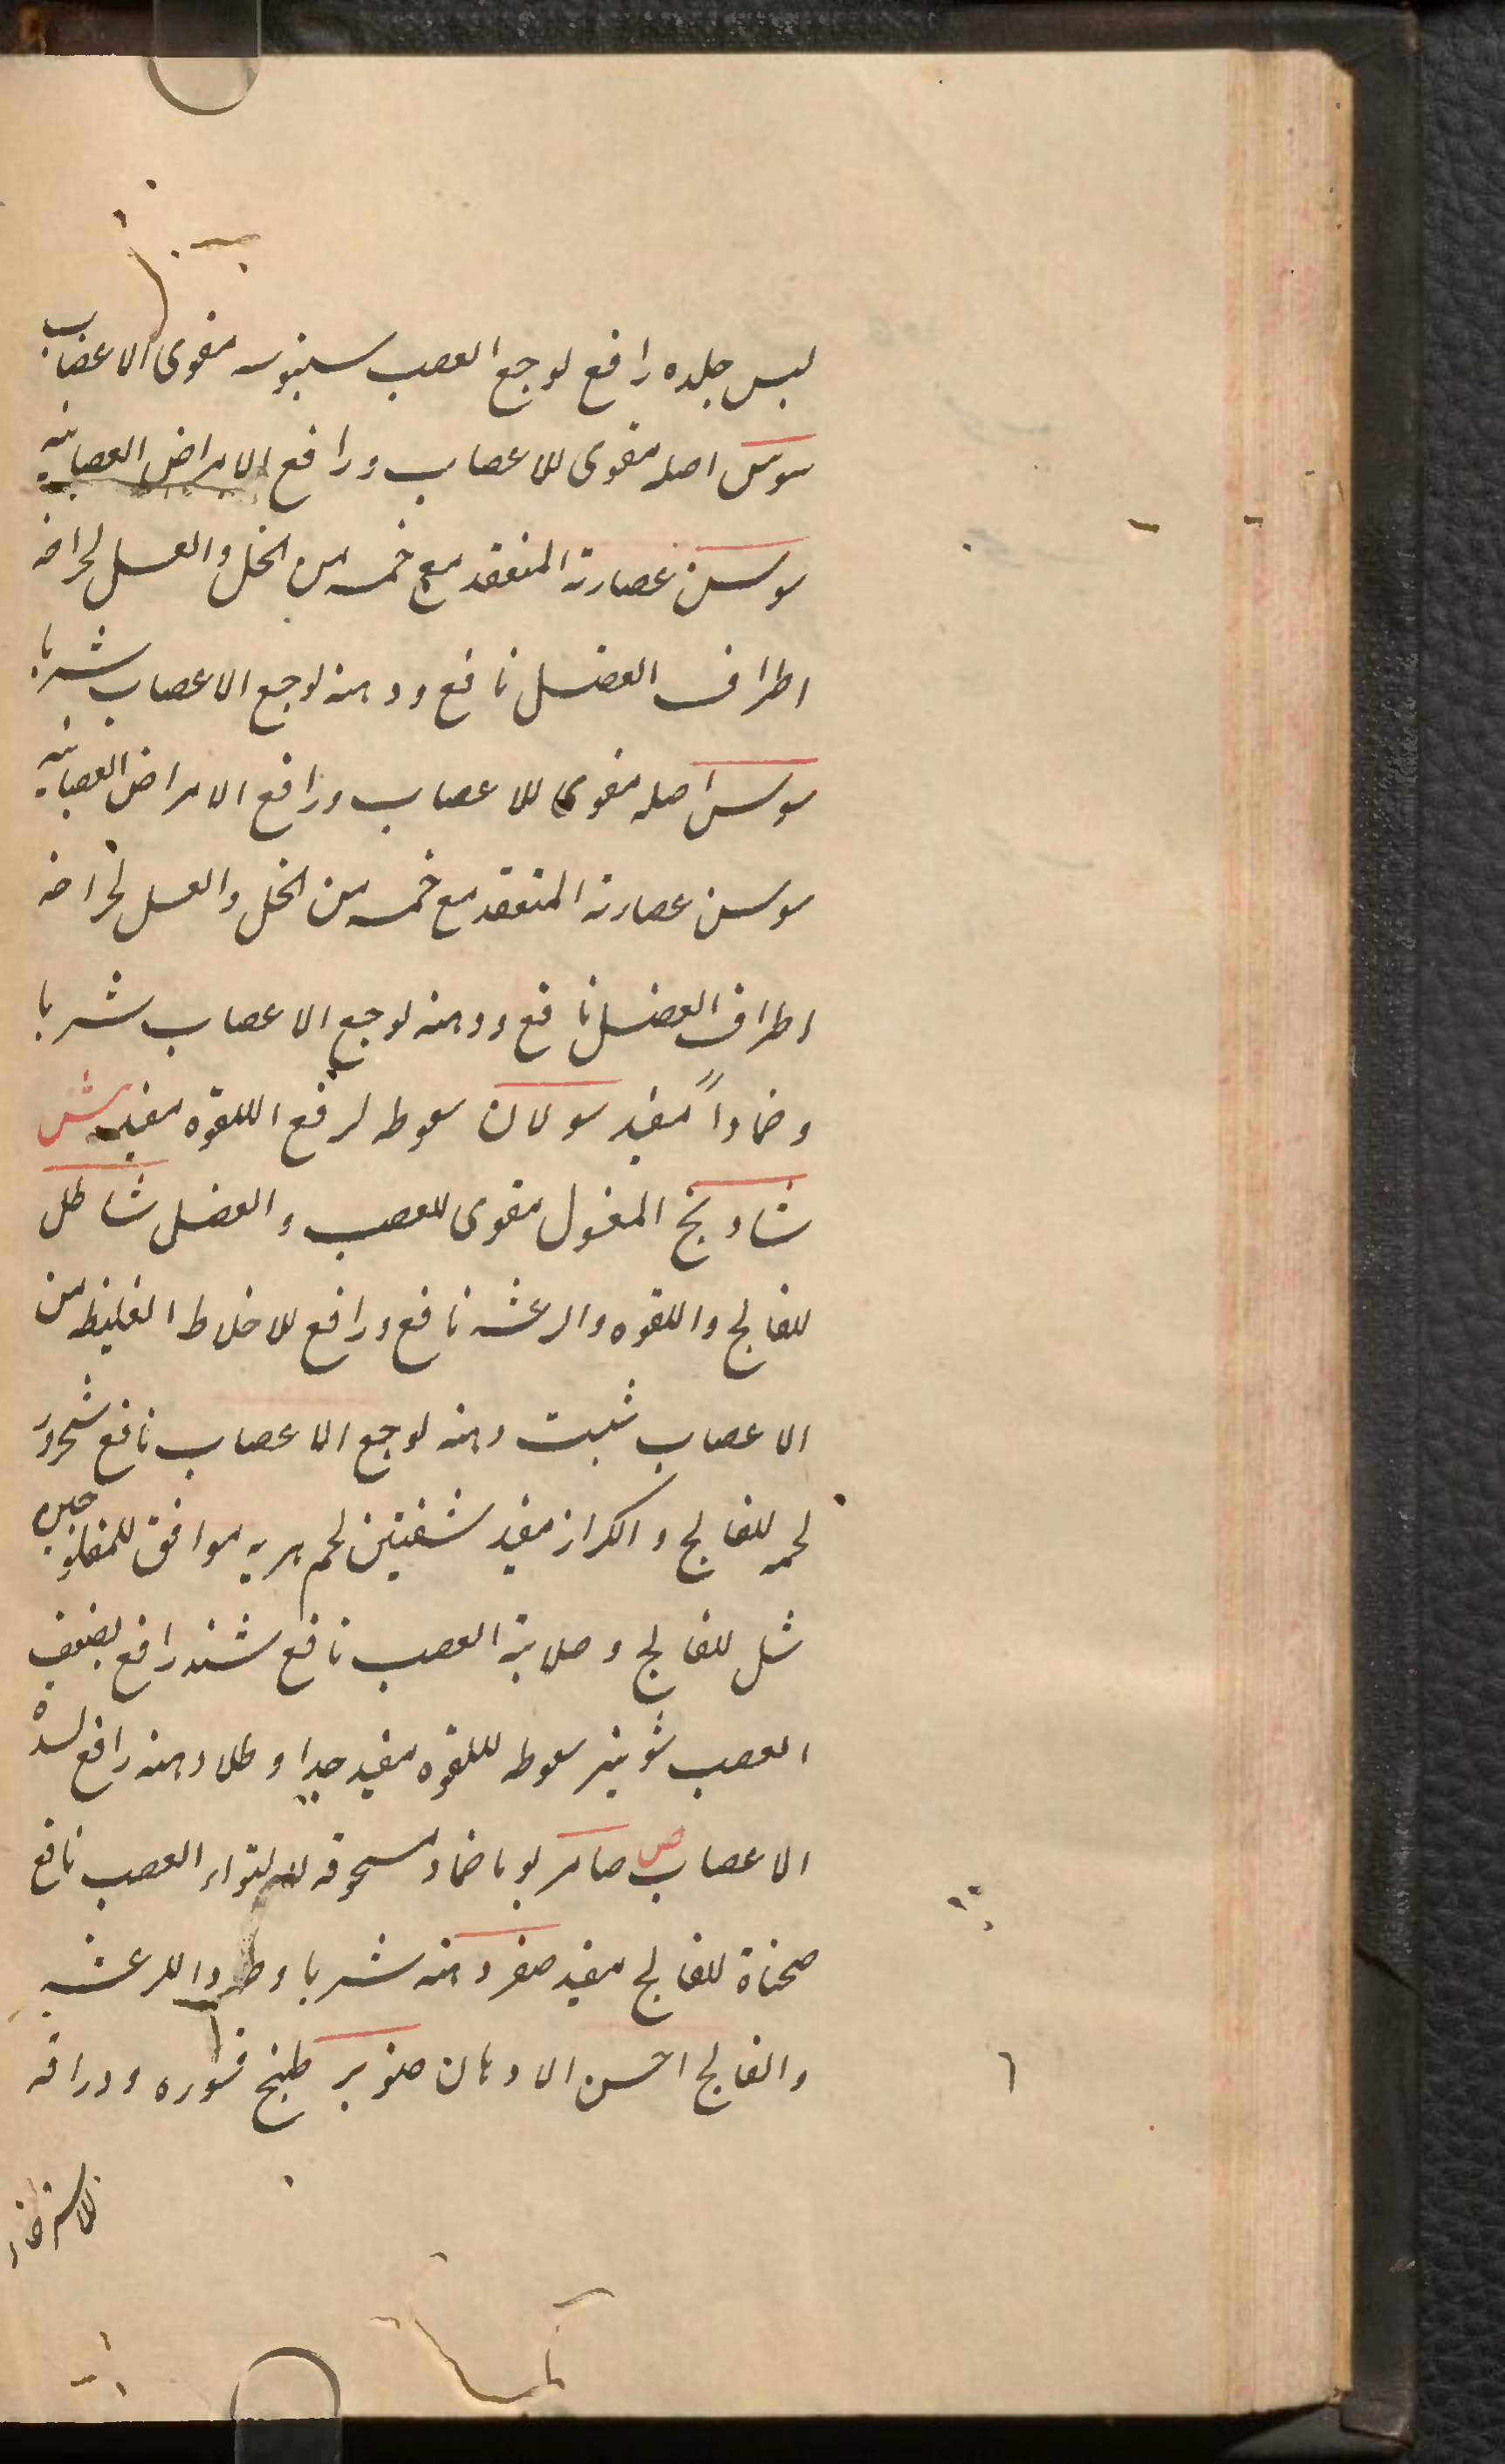 لبس جلده رافع لوجع العصب سنبوسه مقوی الاعصاب
سوس اصله مقوی للاعصاب ورافع الامراض العصبانیه
سوسن عصارته المنعقد مع خمسه من الخل والعسل لجراحه
اطراف العضل نافع ودهنه لوجع الاعصاب شربا
سوس اصله مقوی للاعصاب ورافع الامراض العصبانیه
سوسن عصارته المنعقد مع خمسه من الخل والعسل لجراحه
اطراف العضل نافع ودهنه لوجع الاعصاب شربا
وضماداً مفید سولان سعوطه لرفع اللقوه مفید ش
شادنج المغسول مقوی للعصب والعضل شاطل
للفالج واللقوه والرعشه نافع ورافع للاخلاط الغلیظه من
الاعصاب شبت دهنه لوجع الاعصاب نافع شحرور
لحمه للفالج والکزاز مفید شفنین لحم بریه موافق للمفلوجین
شل للفالج وصلابة العصب نافع شند رافع لضعف
العصب شونیز سعوطه للقوه مفید جدا وطلا دهنه رافع لسدة
الاعصاب ص صامر یوما ضماد مسحوقه لالتواء العصب نافع
صحناة للفالج مفید صفرد دهنه شربا وطلاء للرعشه
والفالج احسن الادهان صنوبر طبخ قشوره ودراقه
للاسترخاء